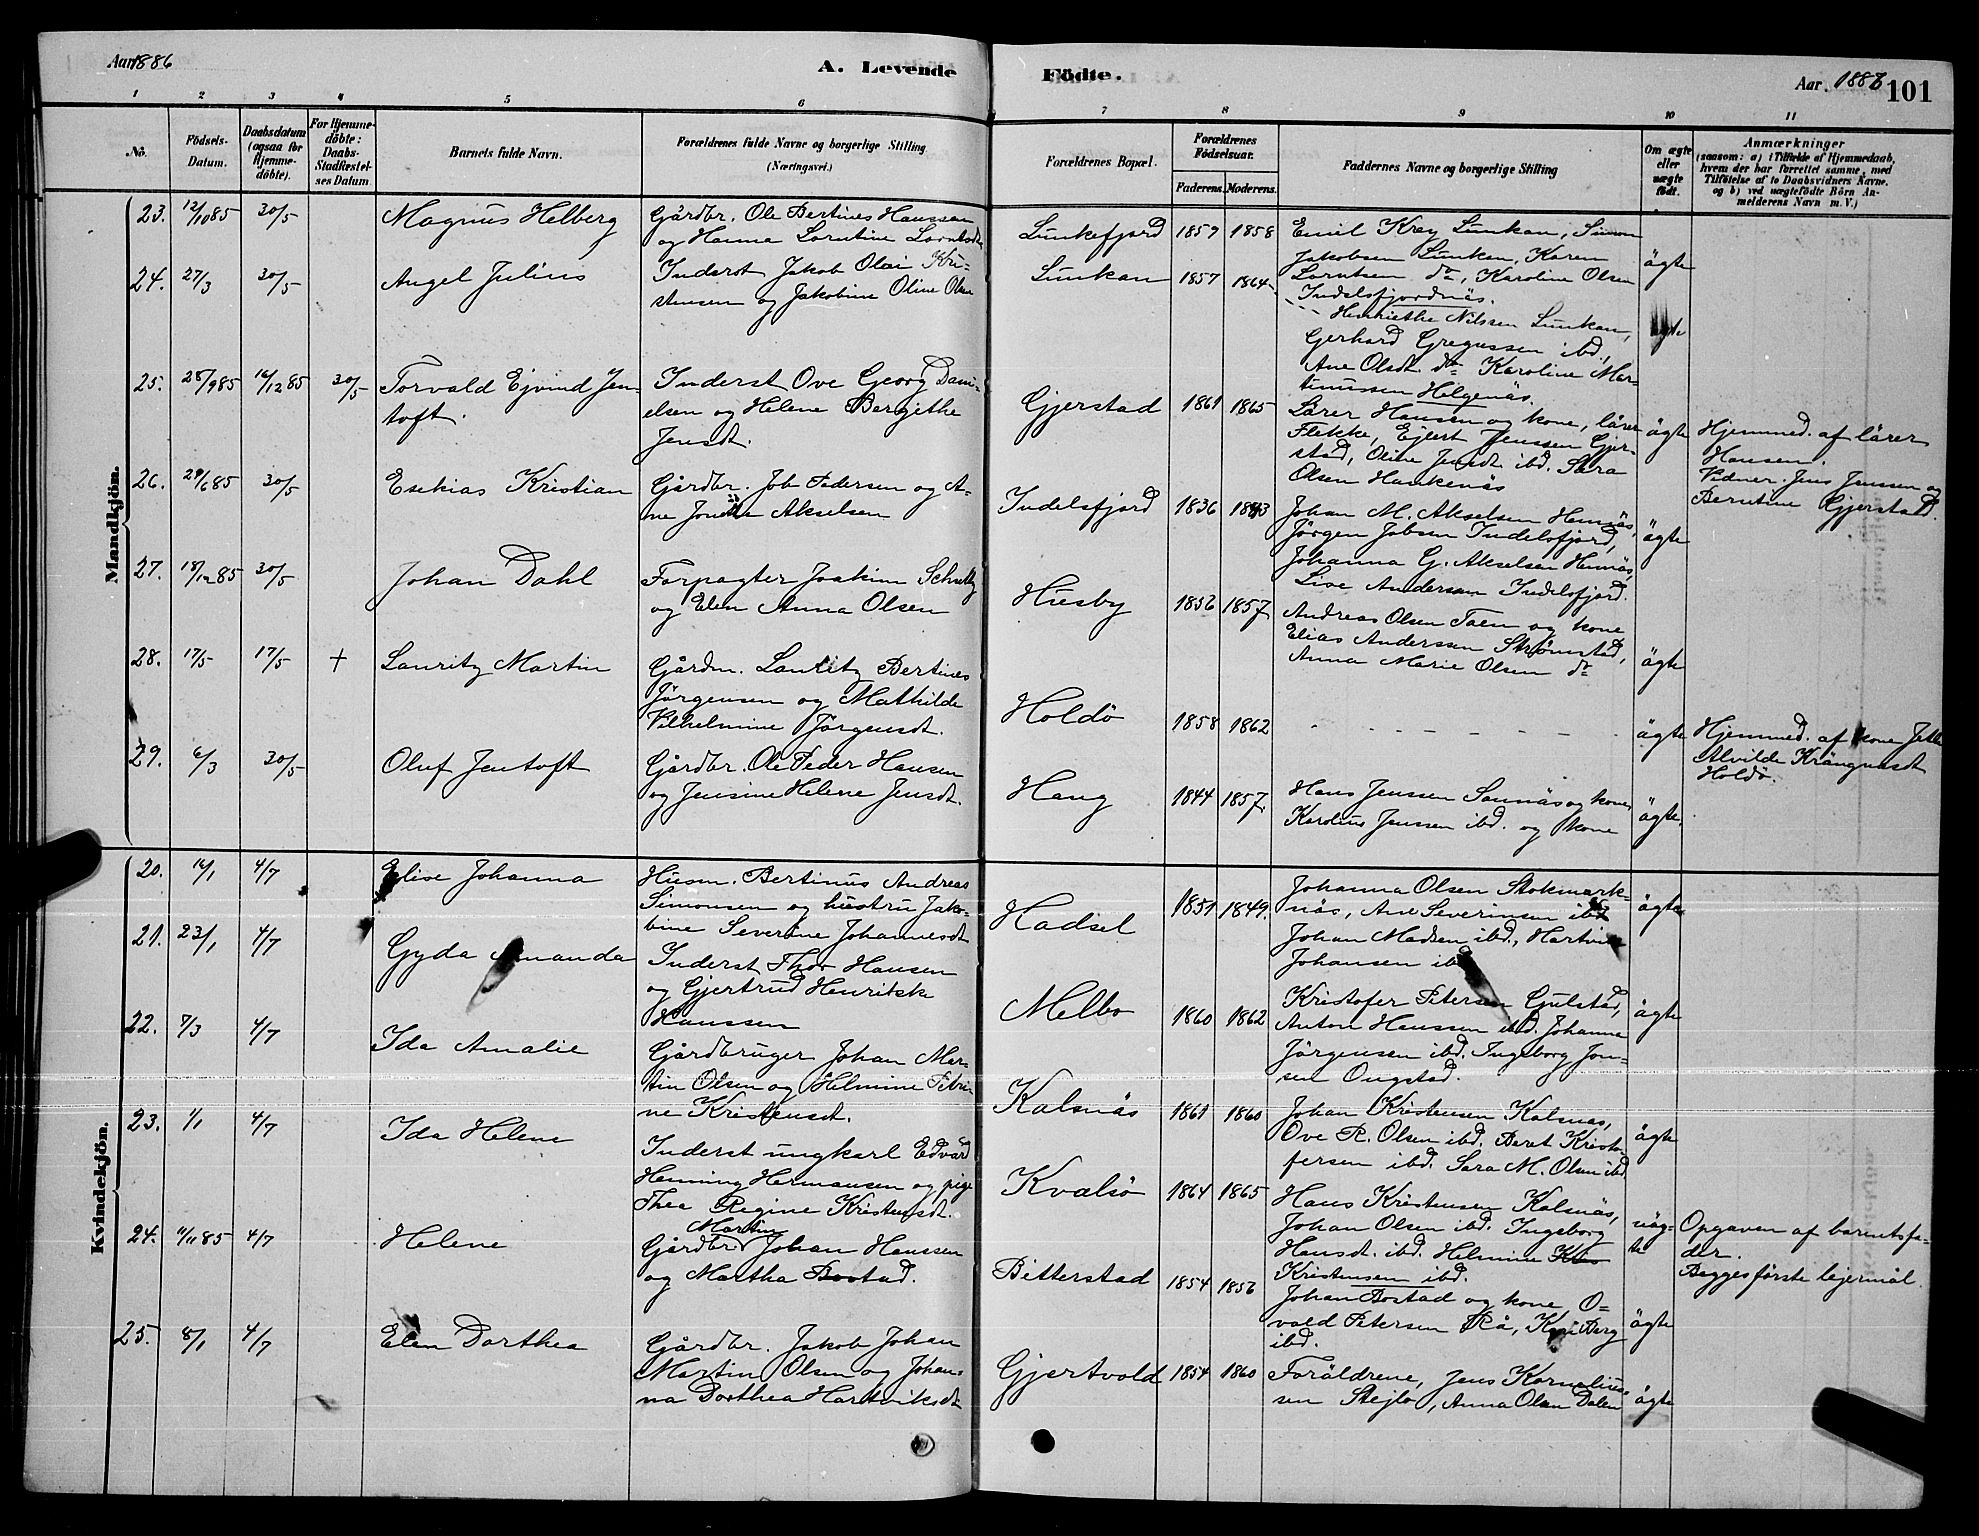 Aar 1886
A. Levende
Födte.
Aar. 1886
101
1 2 3 4 5 6 7 8 9 10 11
No.
Födsels-
Datum.
Daabsdatum
(ogsaa for
Hjemme-
döbte).
For Hjemme-
döbte:
Daabs-
Stadfæstel-
ses Datum
Barnets fulde Navn.
Forældrenes fulde Navne og borgerlige Stilling
(Næringsvei.)
Forældrenes Bopæl.
Forældrenes
Födselsaar.
Faderens. Moderens.
Faddernes Navne og borgerlige Stilling
Om ægte
eller
uægte
födt.
Anmærkninger
(saasom: a) i Tilfælde af Hjemmedaab,
hvem der har forrettet samme, med
Tilföielse af to Daabsvidners Navne.
og b) ved uægtefödte Börn An-
melderens Navn m. V.)
Mandkjön.
23. 12/10 85 30/5 Magnus Helberg
Gårdbr. Ole Bertines Hanssen
og Hanna Lorntine Lorntsdt
Lunkefjord 1859 1858
Emil Krey Lunkan, Simon
Jakobsen Lunken, Karen
Lorntsen do, Karoline Olsen
Indelsfjordnäs.
ägte
24. 27/3 30/5 Angel Julius
Inderst Jakob Olai Kri-
stensen og Jakobine Oline Olsen
Lunkan 1857 1864
Henriethe Nilssen Lunkan,
Gerhard Gregussen ibd.,
Ane Olsdt. do Karoline Mar-
tinussen Helgenäs.
ägte
25. 28/9 85 16/12 85 30/5 Torvald Ejvind Jen-
toft.
Inderst Ove Georg Dani-
elsen og Helene Bergithe
Jensdt.
Gjerstad 1861 1865
Lärer Hansen og kone, lärer
Flekke, Ejlert Jenssen Gjer-
stad, Oline Jensdt. ibd. Sara
Olsen Hankenäs
ägte
Hjemmed. af lärer
Hansen.
Vidner. Jens Jenssen og
Berntine Gjerstad.
26. 29/6 85 30/5 Esekias Kristian
Gårdbr. Job Pedersen og A-
ne Akselsen
Indelsfjord 1836 1843
Johan M. Akselsen Hennäs,
Jörgen Jobsen Indelsfjord,
Johanna G. Akselsen Hennäs,
Live Andersen Indelsfjord.
ägte
27. 18/12 85 30/5 Johan Dahl
Forpagter Joakim
og Elen Anna Olsen
Husby 1857
Andreas Olsen Taen og kone
Elias Anderssen Strømstad,
Anna Marie Olsen do
ägte
28. 17/5 17/5 + Lauritz Martin
Gårdm. Lauritz Bertines
Jörgensen og Mathilde
Vilhelmine Jörgensdt.
Holdö 1858 1862
- - - - - - -
ägte
Hjemmed. af kone
Alvilde
Holdö.
29. 6/3 30/5 Oluf Jentoft
Gårdbr. Ole Peder Hansen
og Jensine Helene Jensdt.
Haug 1844 1857.
Hans Jenssen Saunäs og kone,
Karolius Jenssen ibd. og kone
ägte.
Kvindekjön.
20. 16/1 4/7 Elise Johanna
Husm. Bertinus Andreas
Simonsen og hustru Jako-
bine Severine Johannesdt
Hadsel 1851 1849.
Johanna Olsen Stokmark-
näs, Ane Severinsen ibd
Johan Madsen ibd.,
Johansen ibd
ägte
21. 23/1 4/7 Gyda Amanda
Inderst Thor Hansen
og Gjertrud Henrikke
Hanssen
Melbo 1860 1862
Kristofer Petersen Gulstad,
Anton Hanssen ibd. Johanna
Jörgensen ibd. Ingeborg Jon-
sen Ongstad.
ägte
22. 7/3 4/7 Ida Amalie
Gårdbruger Johan Mar-
tin Olsen og Helmine Petri-
ne Kristensdt.
Kalsnäs 1861 1860
Johan Kristensen Kalsnäs,
Ove R. Olsen ibd. Beret Kristo-
fersen ibd. Sara M. Olsen ibd
ägte
23. 1/1 4/7 Ida Helene
Inderst ungkarl Edvard
Henning Hermansen og pige
Thea Regine Kristensdt.
Kvalsö 1864 1865
Hans Kristensen Kalsnäs,
Johan Olsen ibd. Ingeborg
Hansdt. ibd. Helmine
Kristensen ibd.
uäg-
te
Opgaven af barnetsfa-
der.
Begges förste lejermål.
24. 11/11 85 4/7 Helene
Martin
Gårdbr. Johan Hanssen
og Martha Bostad.
Bitterstad 1854 1856
Johan Bostad og kone, O-
vald Petersen Rå, Berg
ibd.
ägte
25. 8/1 4/7 Elen Dorthea
Gårdbr. Jakob Johan
Martin Olsen og Johan-
na Dorthea Hartviksdt.
Gjertvold 1854 1860
Foräldrene, Jens Kornelius-
sen Stejlo, Anna Olsen Dalen
ägte